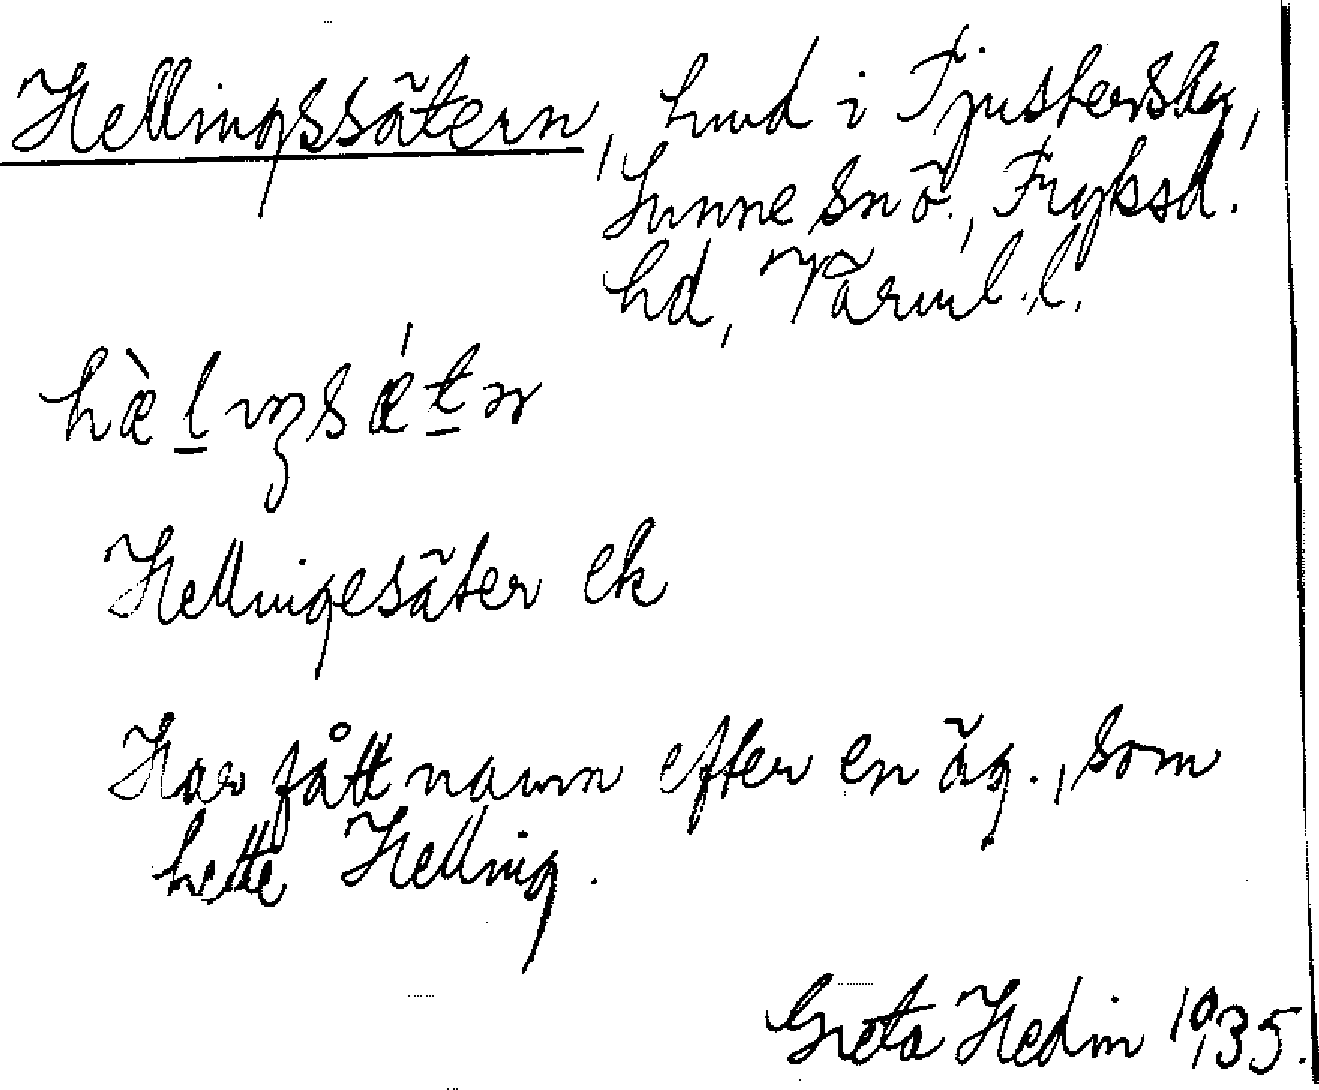 Hellingssätern, hmd i Tjustersby,
Sunne snö., Fryksd.
hd, Värml. l.
hæ̀lıŋsǽtn
Hellingesäter ek
Har fått namn efter en äg., som
hette Helling.
Greta Hedin 1935.